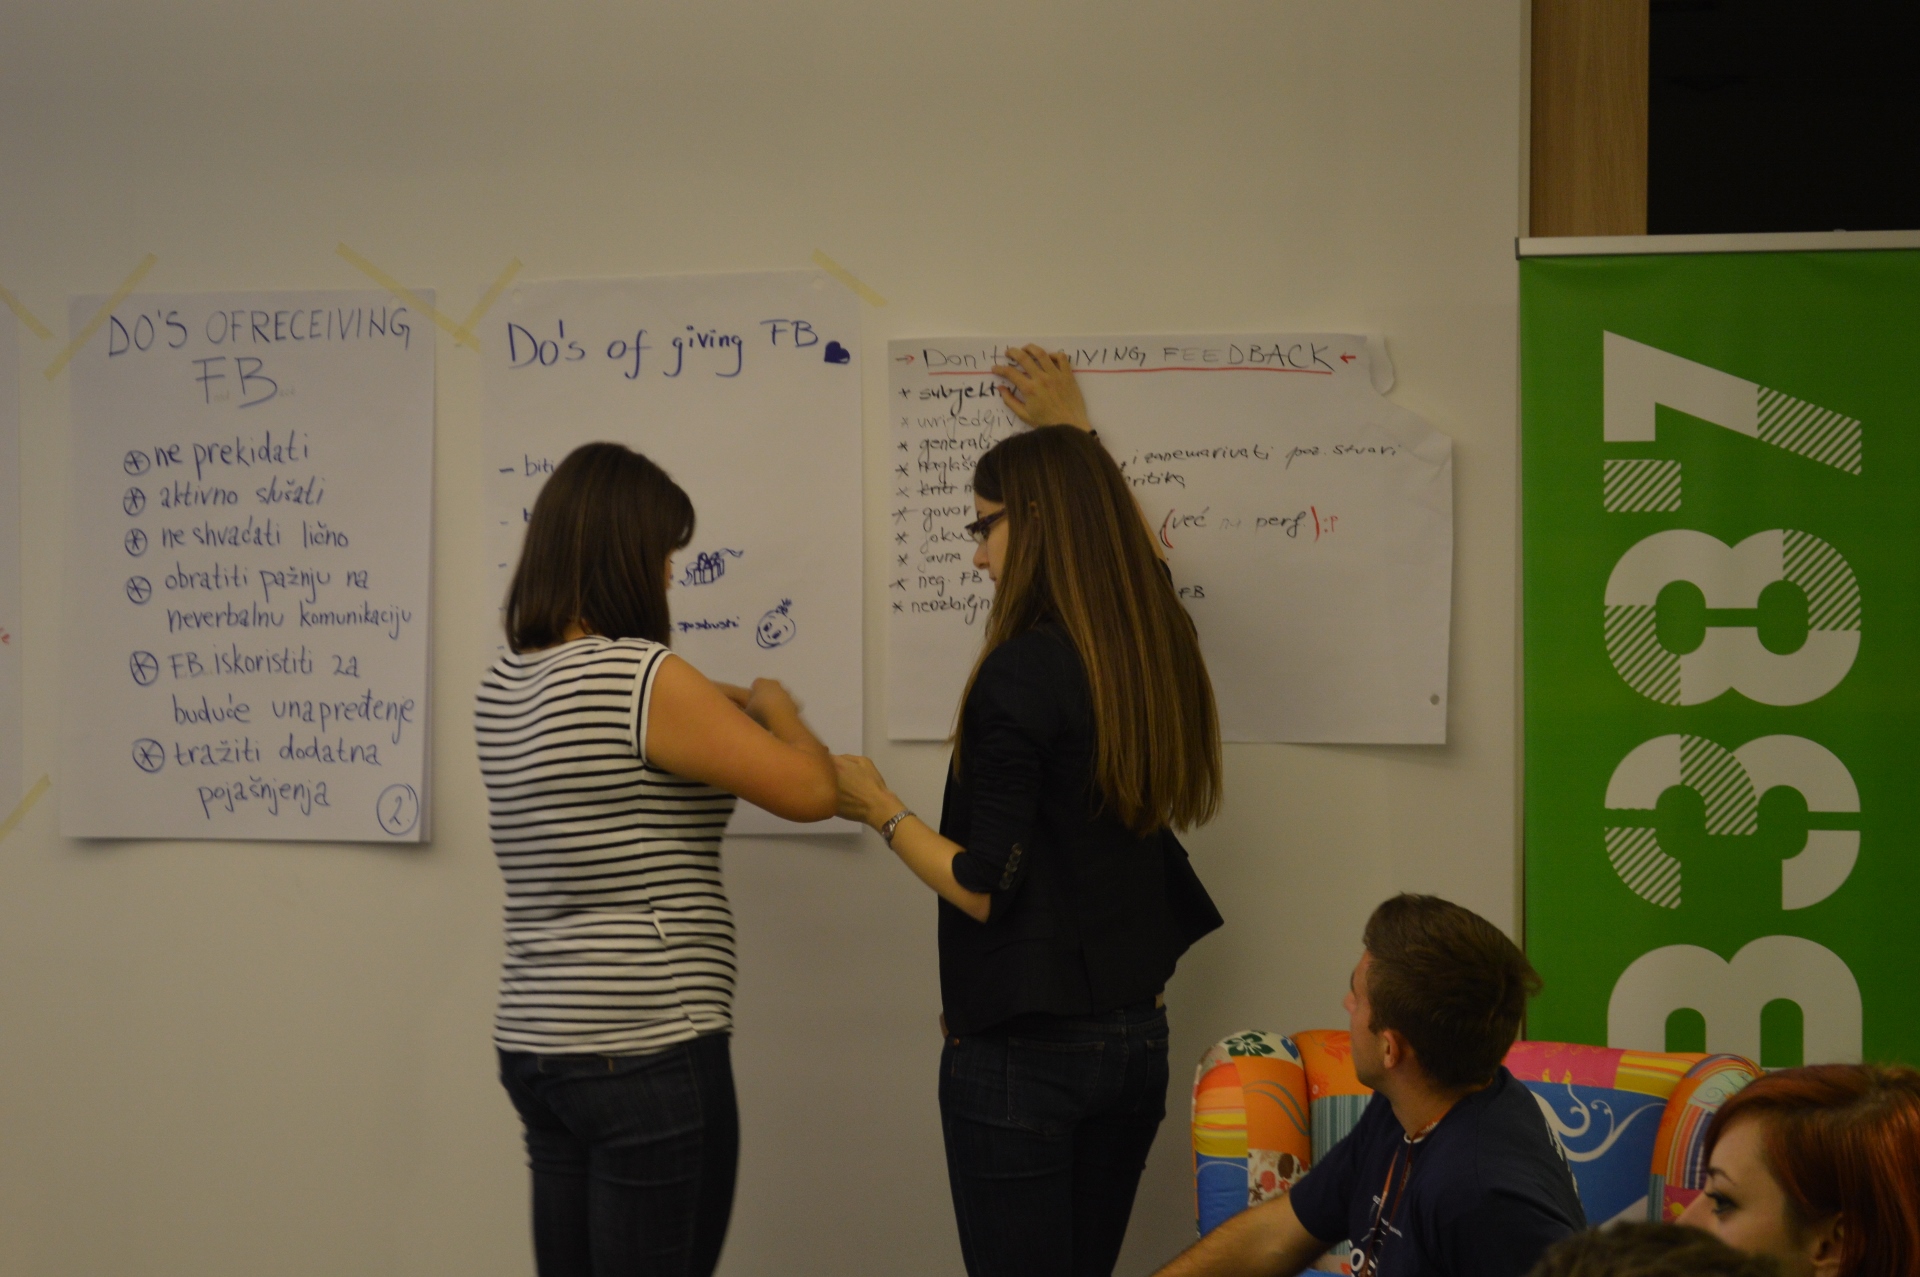 DO'S OF RECEIVING
FB
ne prekidati
aktivno slušati
ne shvaćati lično
obratiti pažnju na
neverbalnu komunikaciju
FB iskoristiti za
buduće unapređenje
tražiti dodatna
pojašnjenja
2.
Do's of giving FB
- biti
-
-
→ Don't GIVING FEEDBACK ←
* subjektiv
* uvrijedljiv
* generaliz
* naglaša i zanemarivati poz. stvari
* kritika
* govor (već perf.) :P
* foku
* javna
* neg. FB FB
* neozbiljn
B387